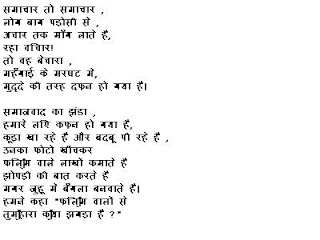 समाचार तो समाचार ,
लोग बाग पड़ोसी से ,
अचार तक माँग लाते है,
रहा विचार!
तो वह बेचारा ,
महँगाई के मरघट मे,
मुद्दे की तरह दफ़न हो गया है।
समाजवाद का झंडा ,
हमारे लिए कफ़न हो गया है,
कूड़ा खा रहे है और बदबू पी रहे है ,
उनका फोटो खींचकर
फिल्म वाले लाखों कमाते है
झोपड़ी की बात करते हैं
मगर जुहू मे बँगला बनवाते हैं।
हमने कहा "फिल्म वालों से
तुम्हारा क्या झगड़ा है ?"